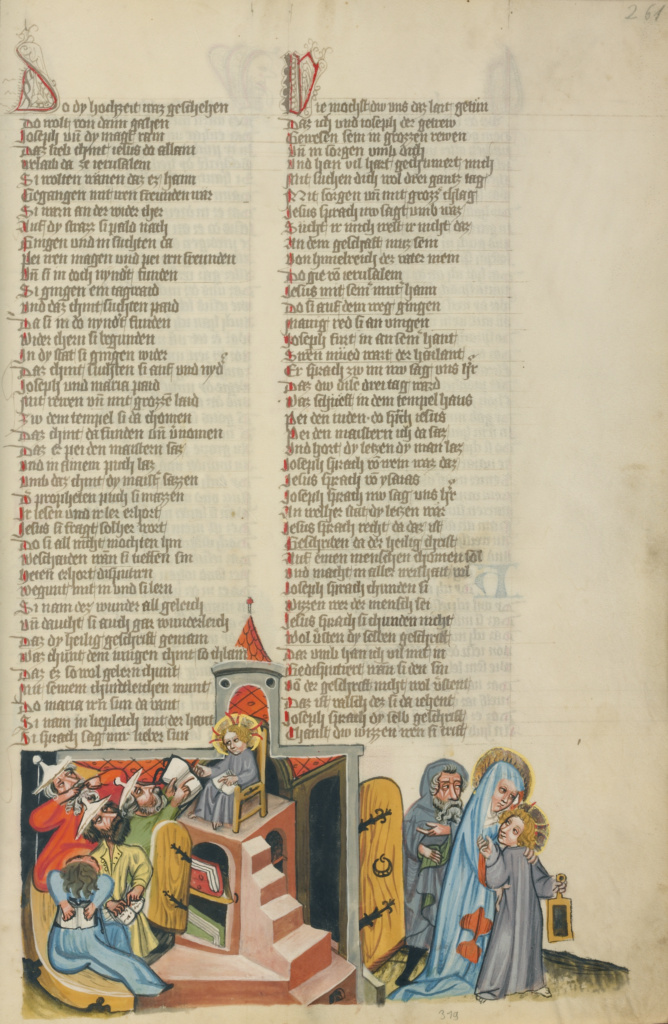 261
Do dy hochzeit waz geschehen
Do wolt von dann gahen
Joseph vn̄ dy magt rain
Daz lieb chint iesus da allain
Welaib da ze ierusalem
Si wolten wänen daz ez haim
Gegangen mit iren freunden war
Si warn an der wider cher
Auf dy strazz si pald nach
Giengen vnd in suchten da
Pei iren magen vnd pei irn freunden
Vn̄ si in doch nyndt funden
Si gingen ein tagwaid
Vnd daz chint suchten paid
Da si in do nyndt funden
Wider chern si begunden
In dy stat si gingen wider
Daz chint suchten si auf vnd nyd
Joseph vnd maria paid
Mit rewen vn̄ mit grozze laid
Zw dem tempel si da chomen
Daz chint da funden
Daz ez pei den maistern saz
Vnd in ainem puch laz
Vmb daz chint dy maist sazzen
D propheten puch si mazzen
Ir lesen vnd ir ler erhort
Jesus si fragt solher wort
Do si all nicht mochten hin
Weschaiden wan si
erhort disputirn
Wegunt mit in vnd si lern
Si nam dez wunder all geleich
Vn̄ daucht si auch gar wunderleich
Daz dy heilig geschrift gemain
Waz chunt dem iungen chint so chlain
Daz ez so wol gelern chunt
Mit seinem chindleichen munt
Do maria irn sun da vant
Si nam in liepleich mit der hant
Si sprach sag mir lieber sun
Wie mochst dw vns daz lait getun
Daz ich vnd ioseph der getrew
Gewesen sein in grozzen rewen
Vn̄ in sorgen vmb dich
Vnd han vil hart gechumert mich
Mit suchen dich wol drei gantz tag
Mit sorgen vn̄ mit grozz chlag
Jesus sprach nw sagt vmb waz
Sucht ir mich west ir nicht daz
In dem geschaft muz sein
Von himelreich der vater mein
Do gie vō ierusalem
Jesus mit sein mut haim
Do si auf dem weg gingen
Manig red si an vingen
Joseph furt in an sein hant
Swen mued wart der hailant
Er sprach zw im nw sag vns h̄r
Daz dw dise drei tag ward
Waz scheft in dem tempel haus
Pei den iuden do sprach iesus
Pei den maistern ich da saz
Vnd hort dy letzen dy man laz
Joseph sprach vō wem waz daz
Jesus sprach vō ysaias
Joseph sprach nw sag vns h̄r
In welher sint dy letzen war
Jesus sprach recht da daz ist
Geschriben da der heilig christ
Auf einen menschen chomen sol
Vnd macht in aller weishait vol
Joseph sprach chunden si
Wizzen wer der mensch sei
Jesus sprach si chunden nicht
Wol vsten dy selben geschrift
Dar vmb han ich vil mit in
Gedisputiert wan si den sin
Vō der geschrift nicht wol vstent
Daz ist valsch dez si da iehent
Joseph sprach dy selb geschrift
Chanst dw wizzen wen si trift
319